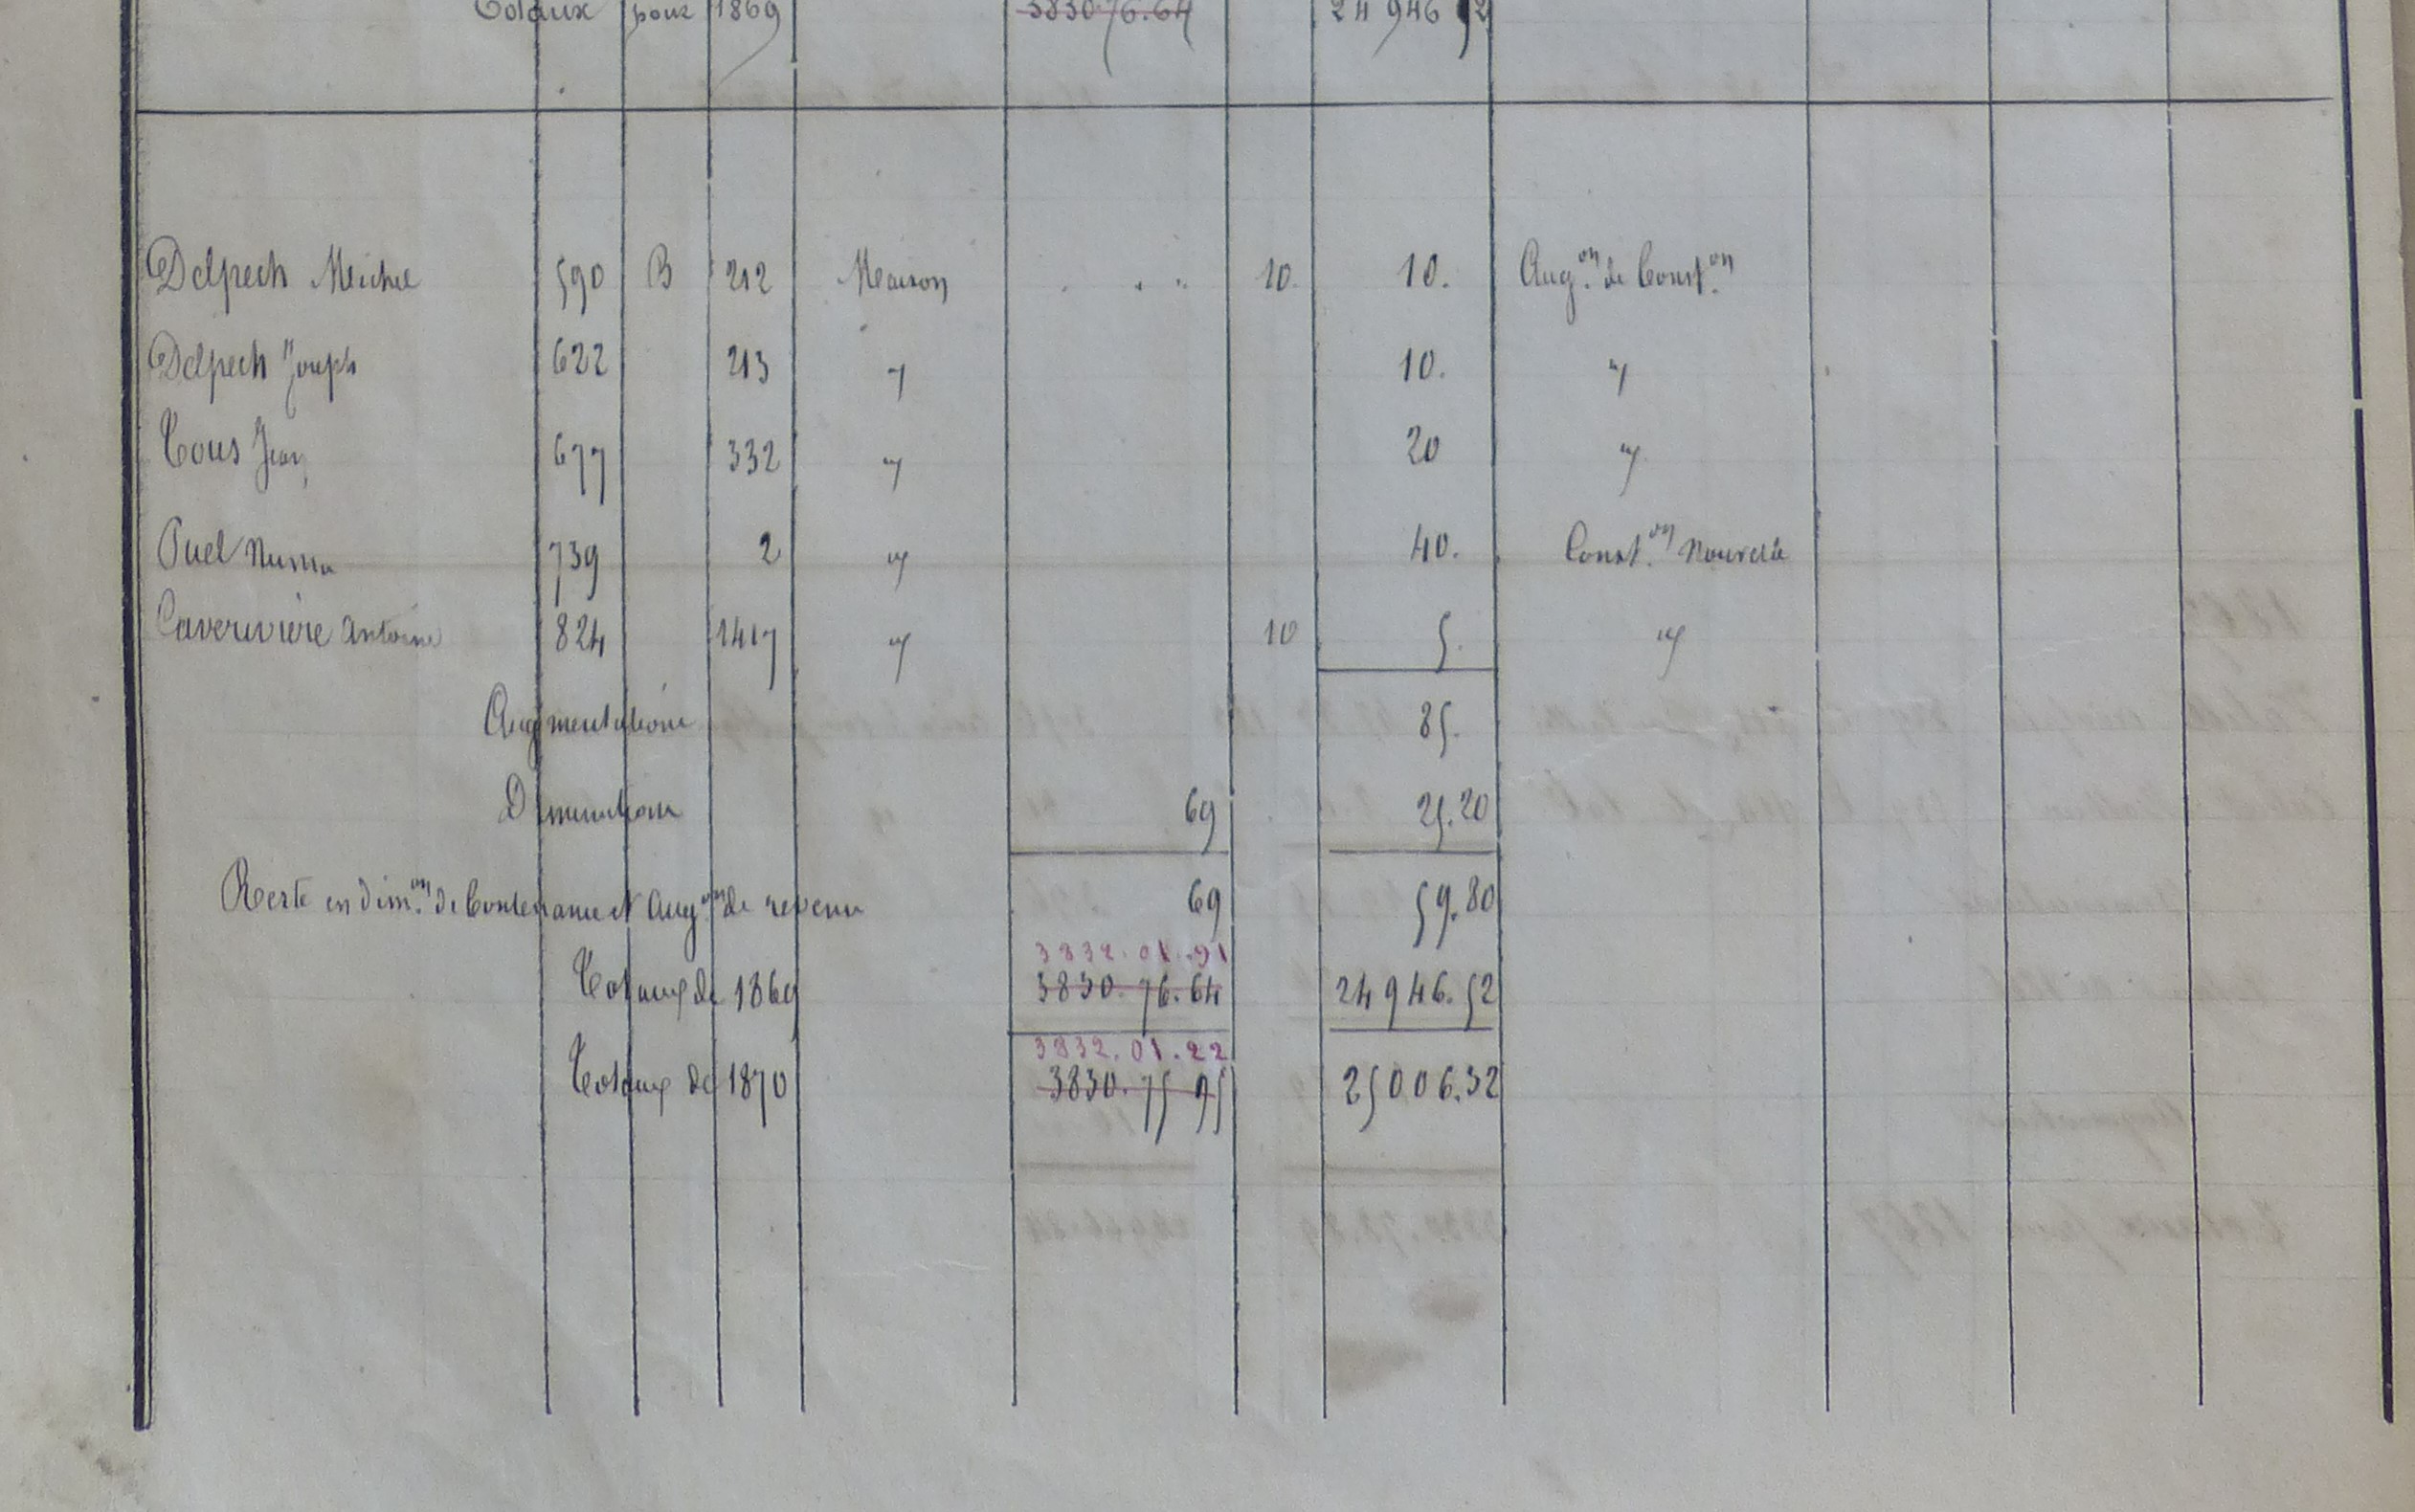 Totaux pour 1869 3830.76.64 24946 52
Delpech Michel 590 B 212 Maison . . . 10. 10. Aug.on de Const.on
Delpech Joseph 622 213 " 10. "
Tous Jean 677 332 " 20 "
Puel Numa 739 2 " 40. Const.on Nouvelle
Caverivière Antoine 824 1417 " 10 5. "
Augmentations 85.
Diminutions 69 25.20
Reste en dim.on de Contenance et Aug.on de revenu 69 59.80
3832.01.91
Totaux de 1869 3830.76.64 24946.52
3832.01.22
Totaux de 1870 3830.75 95 25006.32